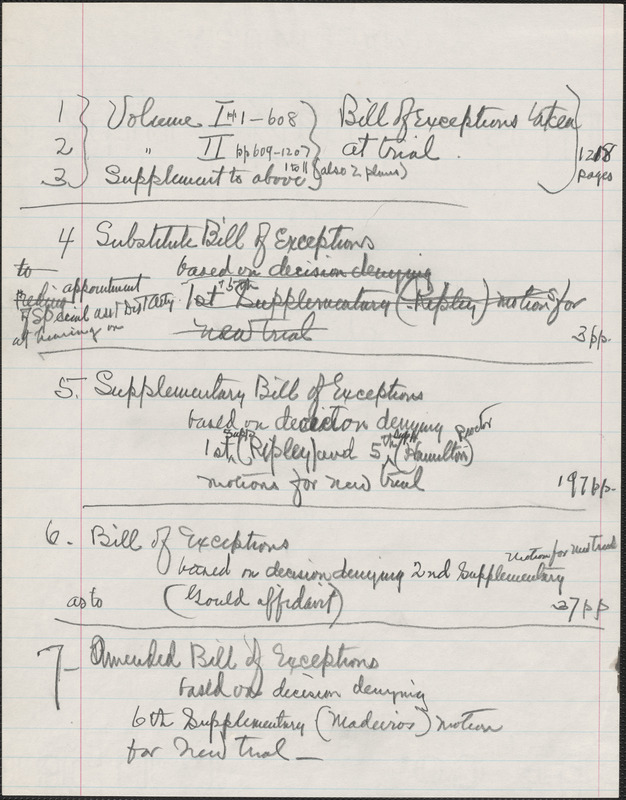 1 } Volume I pp 1-608 } Bill of Exceptions taken
2 " II pp 609-1207 at trial.
3 Supplement to above 1 to 11 (also 2 plans) 1218 pages
4 Substitute Bill of Exceptions
to based on decision denying
appointment 1st Supplementary (Ripley) motions for
of special asst Dist Atty new trial
at hearing on 3 pp.
5. Supplementary Bill of Exceptions
based on decision denying
1st Supp (Ripley) and 5th Supp (Hamilton) Proctor
motions for new trial 197 pp.
6. Bill of Exceptions
based on decision denying 2nd Supplementary motion for new trial
as to (Gould affidavit) 27 pp
7- Amended Bill of Exceptions
based on decision denying
6th Supplementary (Madeiros) motion
for new trial —